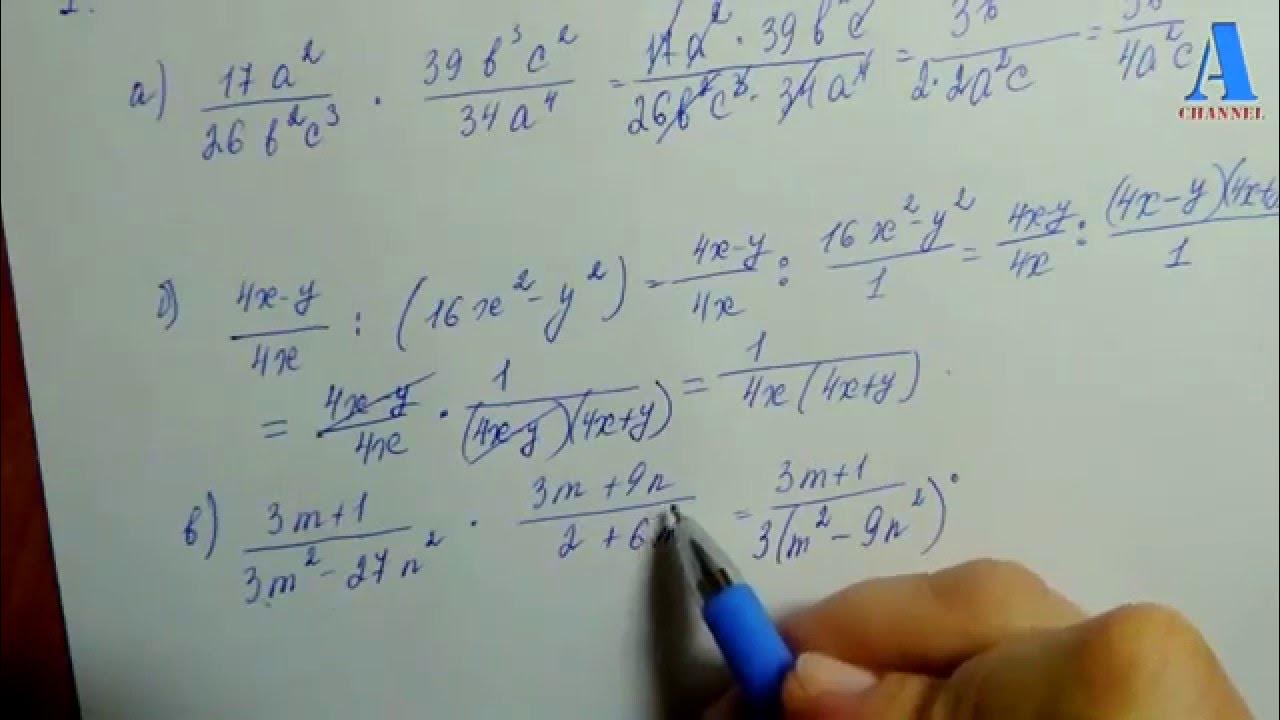 а) 17a²/26b²c³ · 39b³c²/34a⁴ = 17a² · 39b c/26b²c³ · 34a⁴ = 3b/2·2a²c = /4a²c
A CHANNEL
б) 4x-y/4x : (16x²-y²) = 4x-y/4x : 16x²-y²/1 = 4x-y/4x : (4x-y)(4x+/1
= 4x-y/4x · 1/(4x-y)(4x+y) = 1/4x(4x+y)
в) 3m+1/3m²-27n² · 3m+9n/2+6m = 3m+1/3(m²-9n²) ·